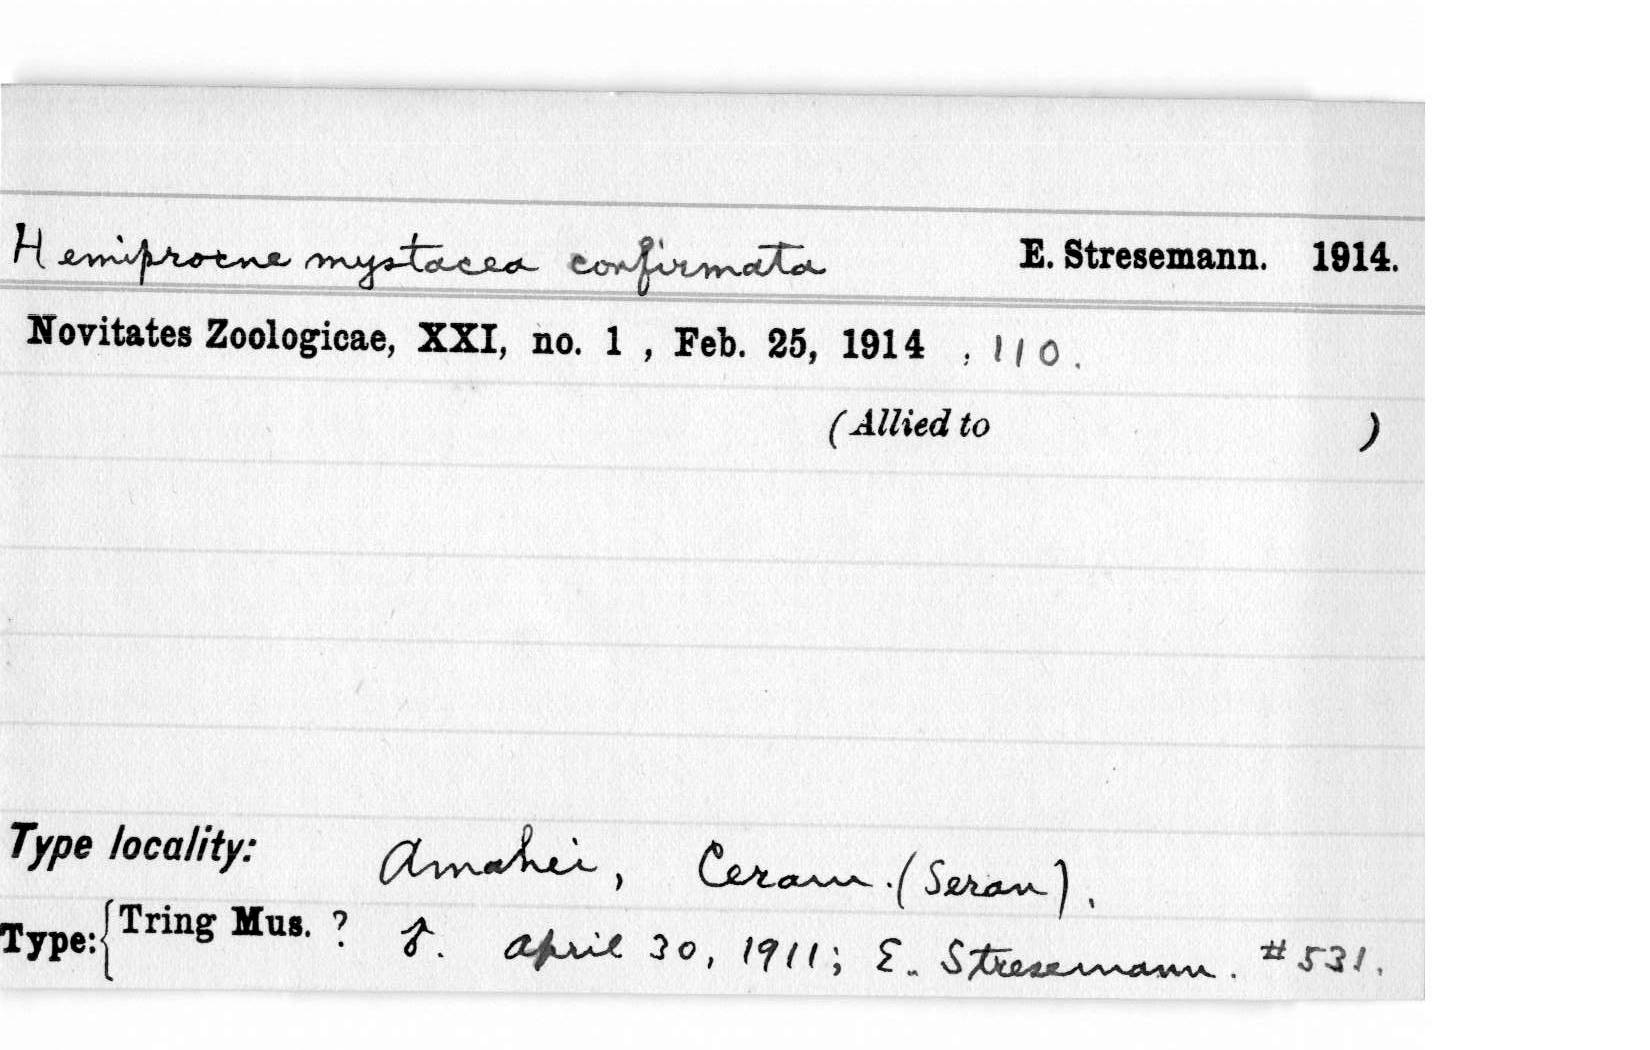 Hemiprocne mystacea confirmata E. Stresemann. 1914.
Novitates Zoologicae, XXI, no. 1 , Feb. 25, 1914 , 110.
(Allied to )
Type locality: Amahei, Ceram. (Seran).
Type: { Tring Mus. ? ♂. April 30, 1911; E. Stresemann. #531.